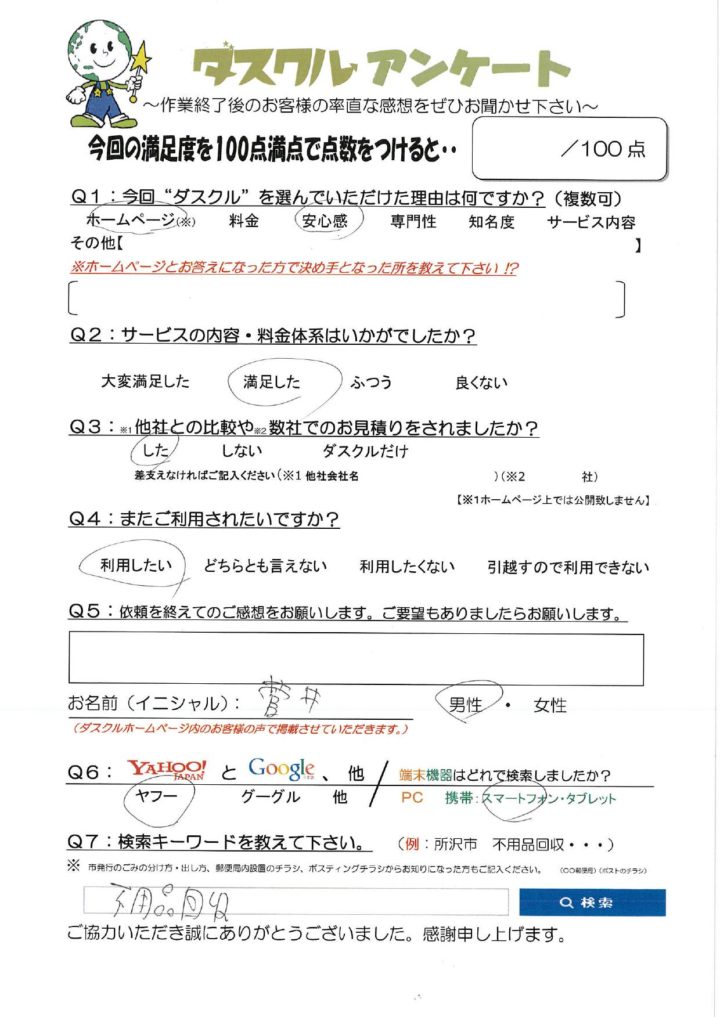 ダスクル アンケート
～作業終了後のお客様の率直な感想をぜひお聞かせ下さい～
今回の満足度を100点満点で点数をつけると・・ ／100点
Q1：今回“ダスクル”を選んでいただけた理由は何ですか？（複数可）
ホームページ(※) 料金 安心感 専門性 知名度 サービス内容
その他【 】
※ホームページとお答えになった方で決め手となった所を教えて下さい!?
Q2：サービスの内容・料金体系はいかがでしたか？
大変満足した 満足した ふつう 良くない
Q3：※1他社との比較や※2数社でのお見積りをされましたか？
した しない ダスクルだけ
差支えなければご記入ください（※1 他社会社名 ）（※2 社）
【※1ホームページ上では公開致しません】
Q4：またご利用されたいですか？
利用したい どちらとも言えない 利用したくない 引越すので利用できない
Q5：依頼を終えてのご感想をお願いします。ご要望もありましたらお願いします。
お名前（イニシャル）： 菅井 男性 ・ 女性
（ダスクルホームページ内のお客様の声で掲載させていただきます。）
Q6：YAHOO! JAPAN と Google 、他 / 端末機器はどれで検索しましたか？
ヤフー グーグル 他 PC 携帯：スマートフォン・タブレット
Q7：検索キーワードを教えて下さい。 （例：所沢市 不用品回収・・・）
※ 市発行のごみの分け方・出し方、郵便局内設置のチラシ、ポスティングチラシからお知りになった方もご記入ください。 （〇〇郵便局）（ポストのチラシ）
不用品回収 検索
ご協力いただき誠にありがとうございました。感謝申し上げます。